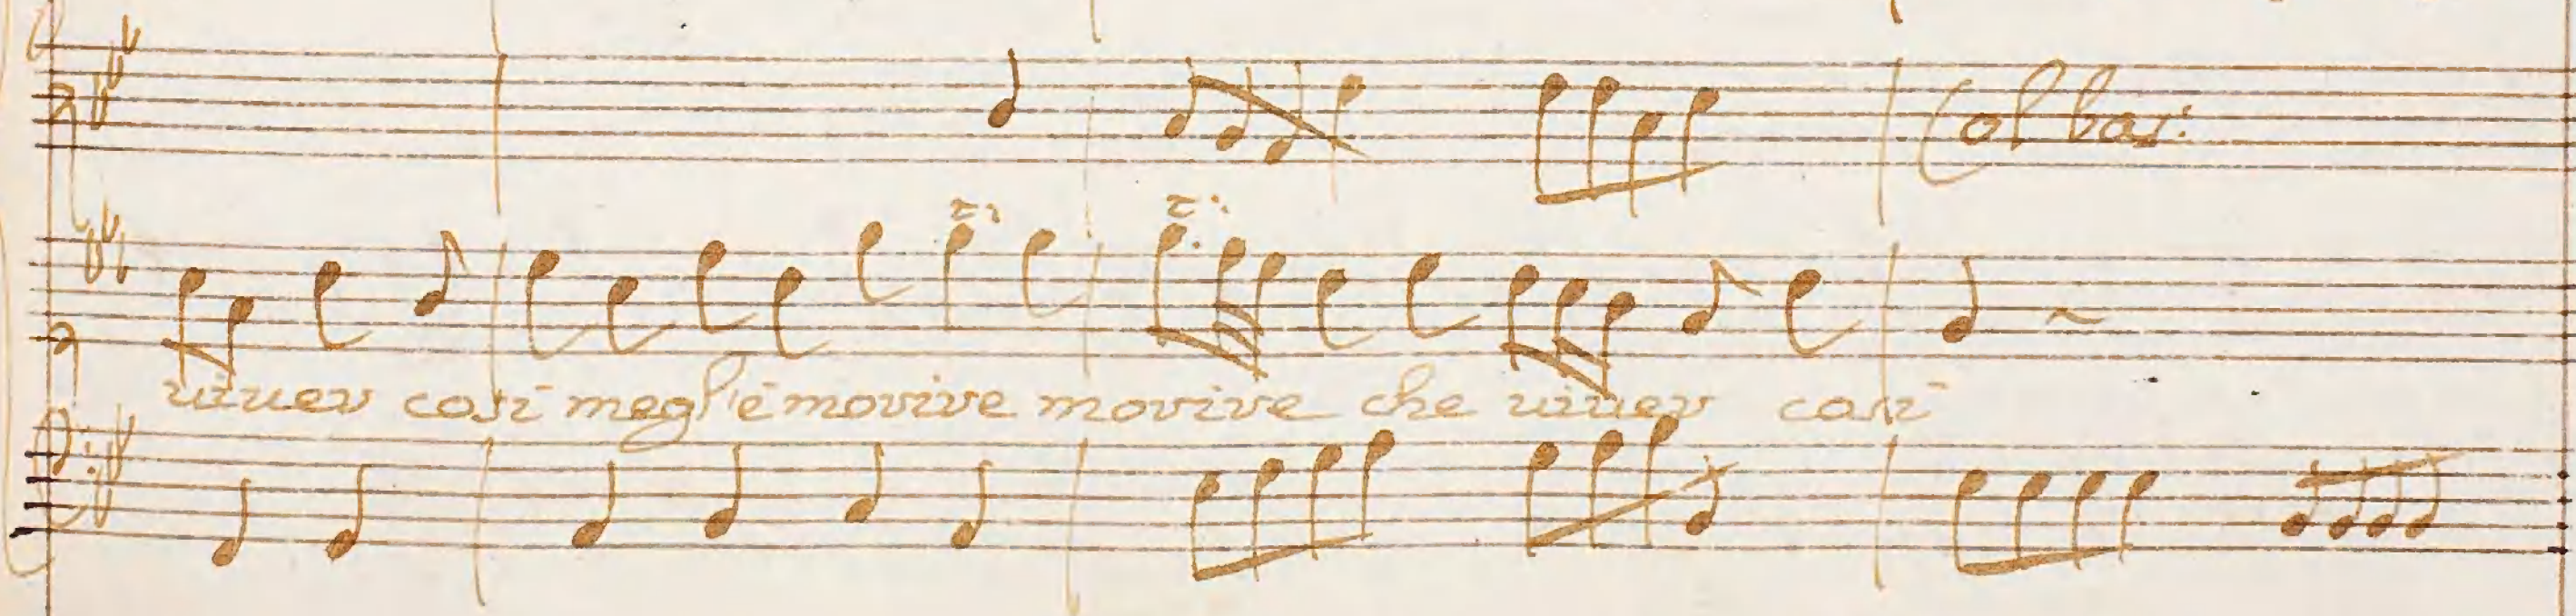 Col bas:
t: t:
viver cosi megl'è morire morire che viver cosi